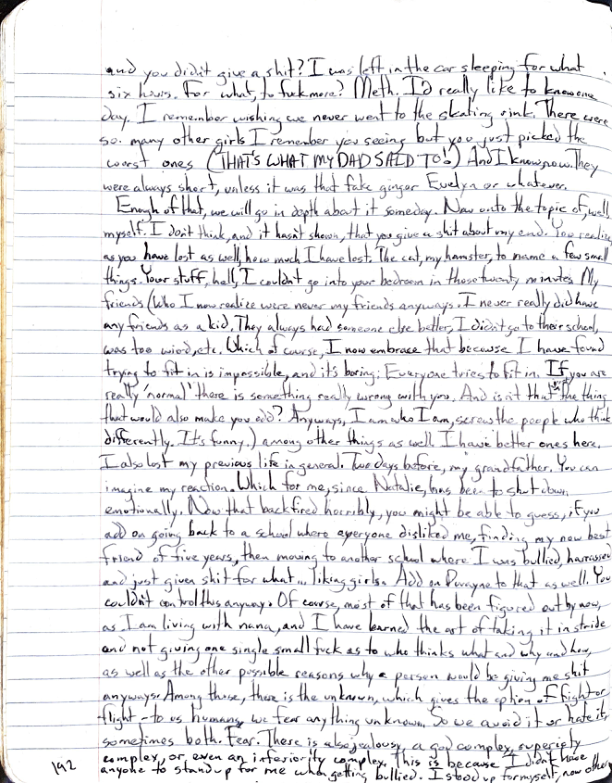 and you didn't give a shit? I was left in the car sleeping for what
six hours. For what, to fuck more? Meth. I'd really like to know one
day. I remember wishing we never went to the skating rink. There were
so many other girls I remember you seeing but you just picked the
worst ones (THAT'S WHAT MY DAD SAID TO!) And I know now. They
were always short, unless it was that fake ginger Evelyn or whatever.
Enough of that, we will go in depth about it someday. Now onto the topic of, well
myself. I don't think, and it hasn't shown, that you give a shit about my end. You realize
as you have lost as well, how much I have lost. The cat, my hamster, to name a few small
things. Your stuff, hell, I couldn't go into your bedroom in those twenty minutes My
friends (Who I now realize were never my friends anyways. I never really did have
any friends as a kid. They always had someone else better, I didn't go to their school,
was too wierd, etc. Which of course, I now embrace that because I have found
trying to fit in is impossible, and it's boring. Everyone tries to fit in. If you are
really 'normal' there is something really wrong with you. And isn't that the thing
that would also make you odd? Anyways, I am who I am, screw the people who think
differently. It's funny.) among other things as well I have better ones here.
I also lost my previous life in general. Two days before, my grandfather. You can
imagine my reaction. Which for me, since Natalie, has been to shut down
emotionally. Now that backfired horribly, you might be able to guess, if you
add on going back to a school where everyone disliked me, finding my new best
friend of five years, then moving to another school where I was bullied, harrassed
and just given shit for what... liking girls. Add on to that as well. You
couldn't control this anyway. Of course, most of that has been figured out by now,
as I am living with nana, and I have learned the art of taking it in stride
and not giving one single small fuck as to who thinks what and why and how,
as well as the other possible reasons why a person would be giving me shit
anyways. Among those, there is the unknown, which gives the option of fight or
flight - to us humans, we fear anything unknown. So we avoid it or hate it,
sometimes both. Fear. There is also jealousy, a god complex, superiority
complex, or, even an inferiority complex. This is because I didn't have
anyone to stand up for me when getting bullied. I stood up for myself, now other
192